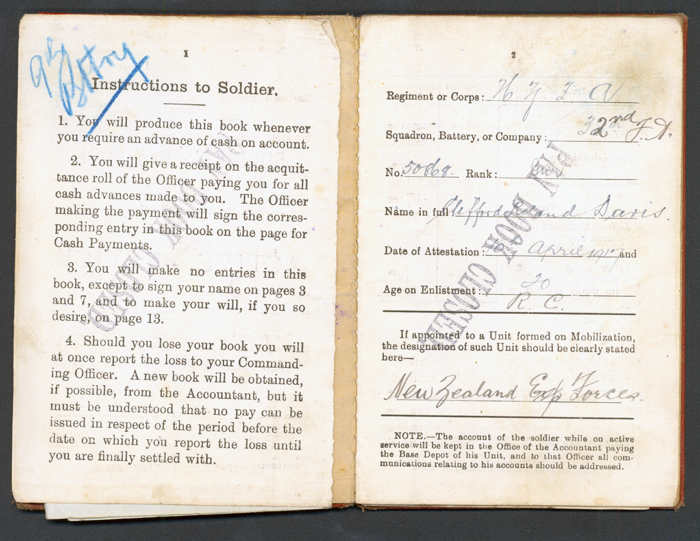 9th
Battery
1
Instructions to Soldier.
1. You will produce this book whenever
you require an advance of cash on account.
2. You will give a receipt on the acquit-
tance roll of the Officer paying you for all
cash advances made to you. The Officer
making the payment will sign the corres-
ponding entry in this book on the page for
Cash Payments.
3. You will make no entries in this
book, except to sign your name on pages 3
and 7, and to make your will, if you so
desire, on page 13.
4. Should you lose your book you will
at once report the loss to your Command-
ing Officer. A new book will be obtained,
if possible, from the Accountant, but it
must be understood that no pay can be
issued in respect of the period before the
date on which you report the loss until
you are finally settled with.
PAY BOOK CLOSED
2
Regiment or Corps: N. Z. F. A
Squadron, Battery, or Company: 32nd F.A.
No. 50868. Rank:
Name in full Clifford Leland Davis.
Date of Attestation: April 1917 and
Age on Enlistment: 20
R. C.
If appointed to a Unit formed on Mobilization,
the designation of such Unit should be clearly stated
here—
New Zealand Exp Forces.
NOTE.—The account of the soldier while on active
service will be kept in the Office of the Accountant paying
the Base Depot of his Unit, and to that Officer all com-
munications relating to his accounts should be addressed.
PAY BOOK CLOSED